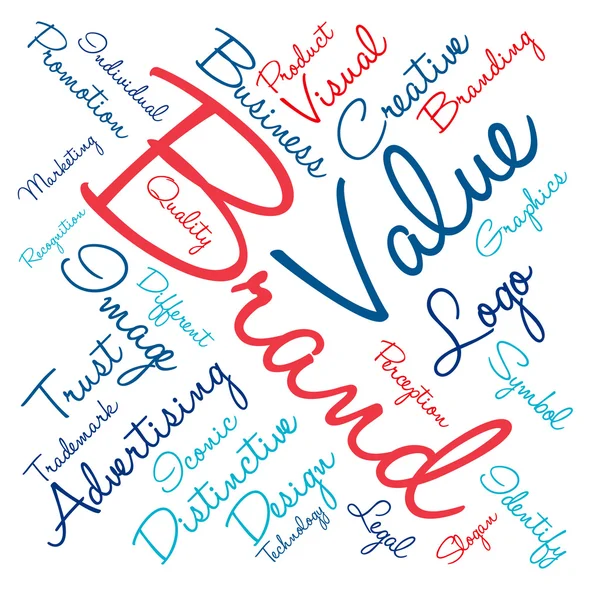 Promotion
Individual
Business
Product
Visual
Creative
Branding
Marketing
Recognition
Quality
Brand
Value
Graphics
Image
Different
Logo
Trust
Trademark
Advertising
Perception
Symbol
Iconic
Distinctive
Design
Technology
Legal
Slogan
Identify